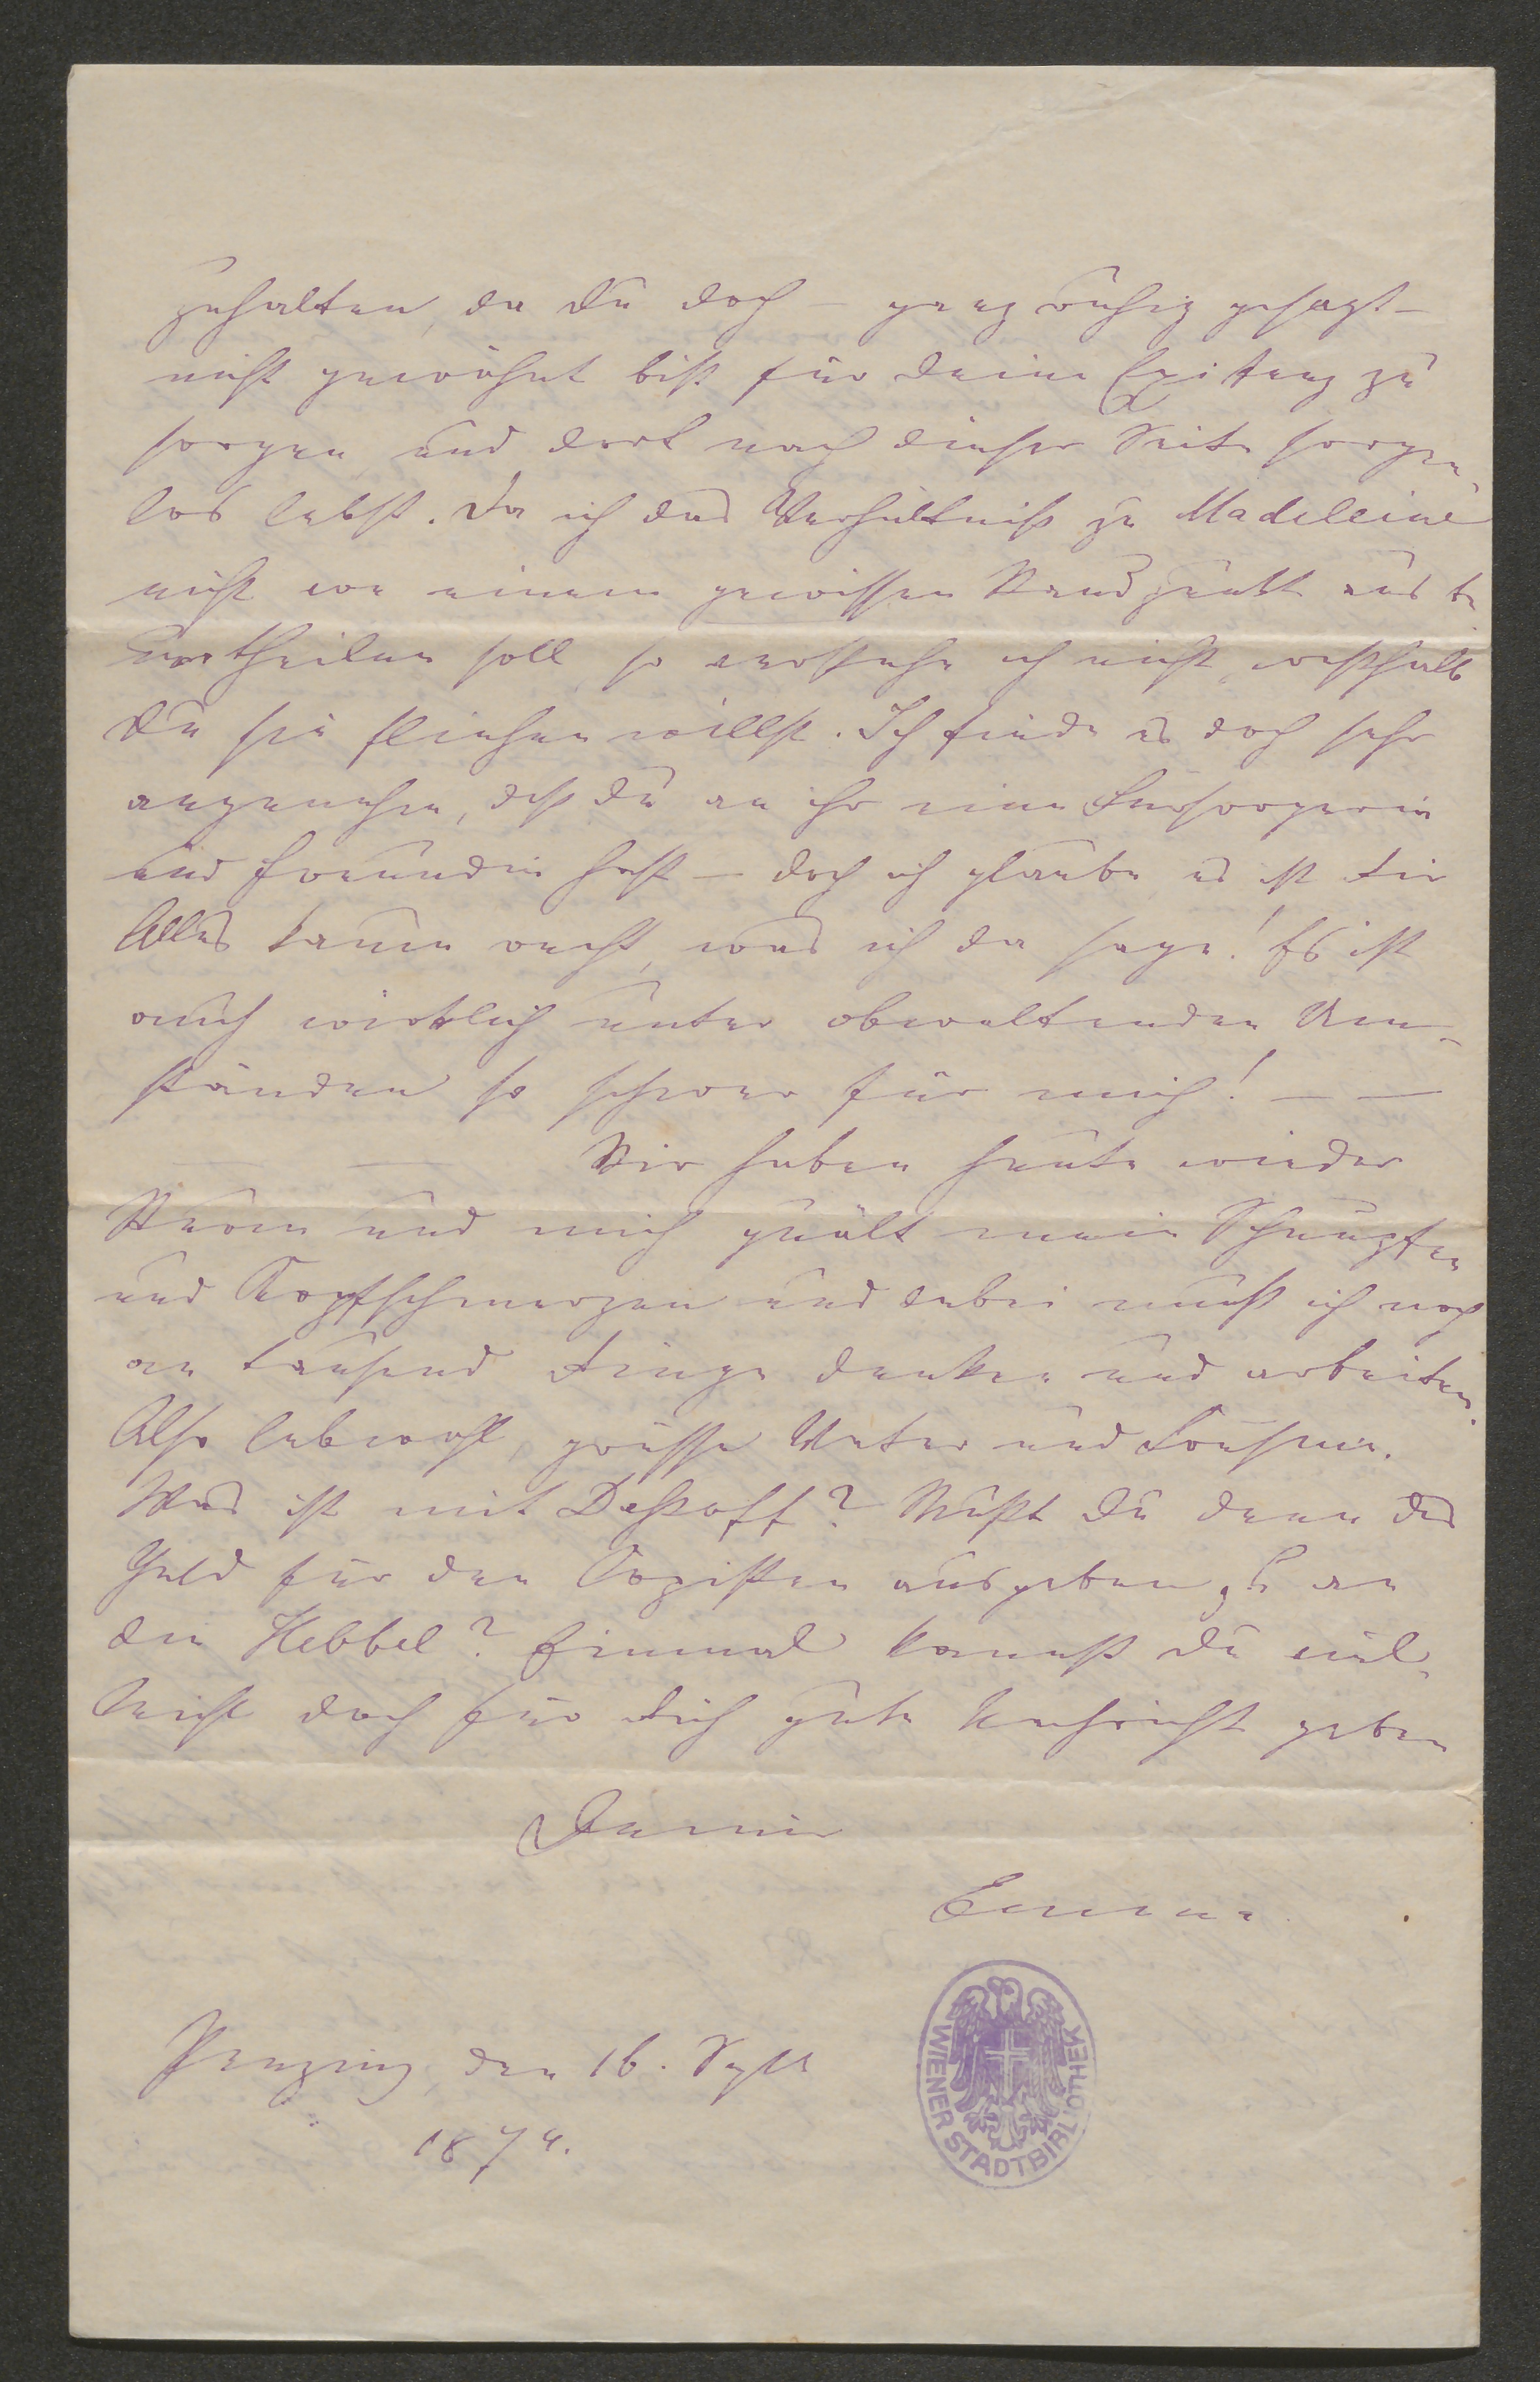 zuhalten, da Du doch – ganz ruhig gesagt –
nicht gewöhnt bist für Deine Existenz zu
sorgen und dort nach dieser Seite sorgen-
los lebst. Da ich das Verhältniß zu Madeleine
nicht von einem gewissen Standpunkt aus be-
urtheilen soll, so verstehe ich nicht, weßhalb
Du sie fliehen willst. Ich finde es doch sehr
angenehm, daß Du an ihr eine Fürsorgerin
und Freundin hast – doch ich glaube es ist Dir
Alles kaum recht, was ich da sage! Es ist
auch wirklich unter obwaltenden Um-
ständen so schwer für mich! – –
– – Wir haben heute wieder
Sturm und mich quält mein Schnupfen
und Kopfschmerzen und dabei muß ich noch
an tausend Dinge denken und arbeiten.
Also lebwohl, grüsse Vater und
Was ist mit Dessoff? Mußt Du denn das
Geld für den Copisten ausgeben, an
die Hebbel? Einmal kannst Du viel-
leicht doch für Dich gute Nachricht geben
Deiner
Emma.
Penzing, den 16. Sept
1874.
WIENER STADTBIBLIOTHEK